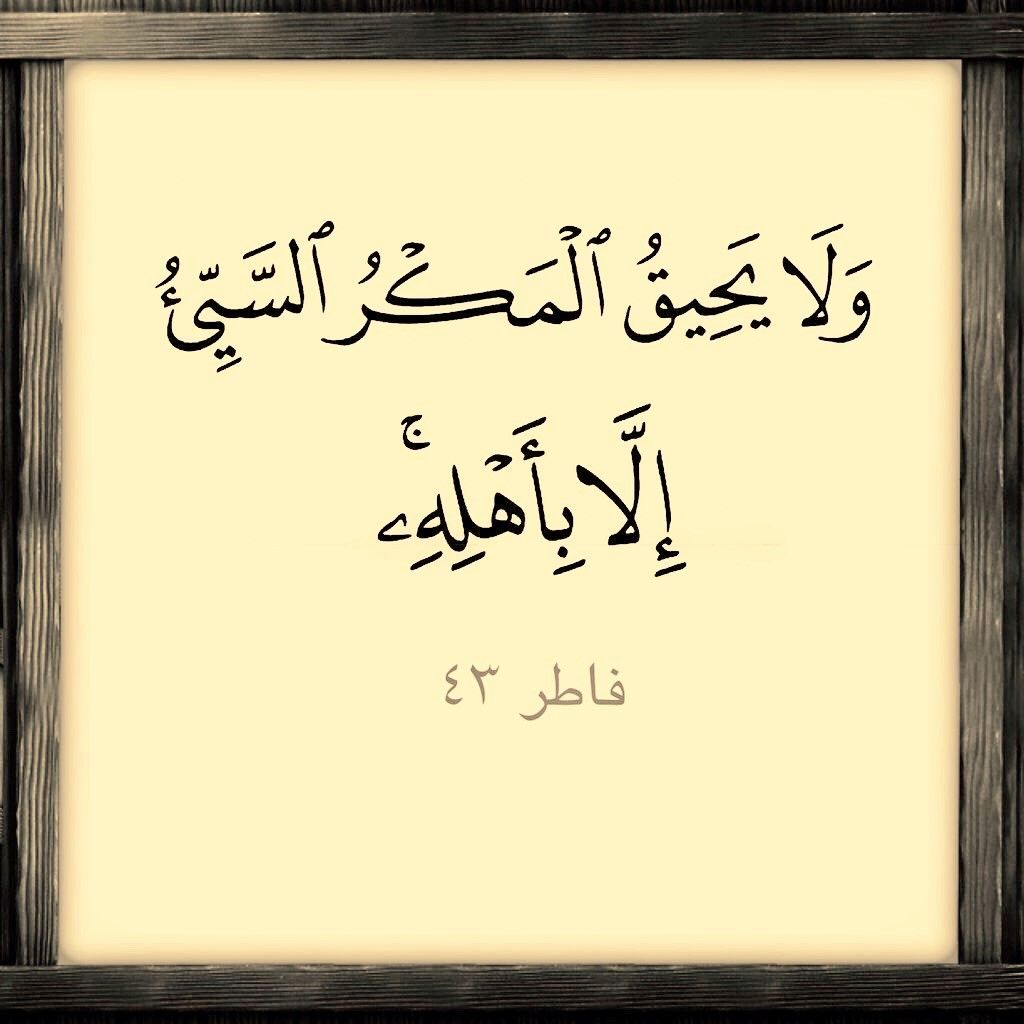 وَلَا يَحِيقُ ٱلْمَكْرُ ٱلسَّيِّئُ
إِلَّا بِأَهْلِهِۦۚ
فاطر ٤٣